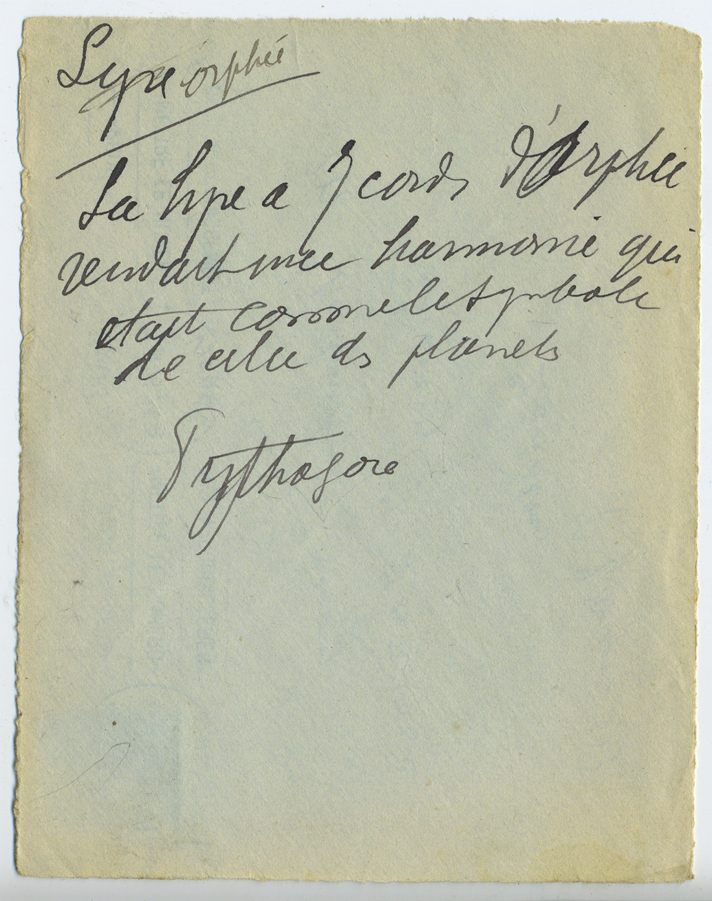 Lyre orphée
La lyre a 7 cords d'Orphée
rendait une harmonie qui
était comme le symbole
de celle ds planets
Pythagore